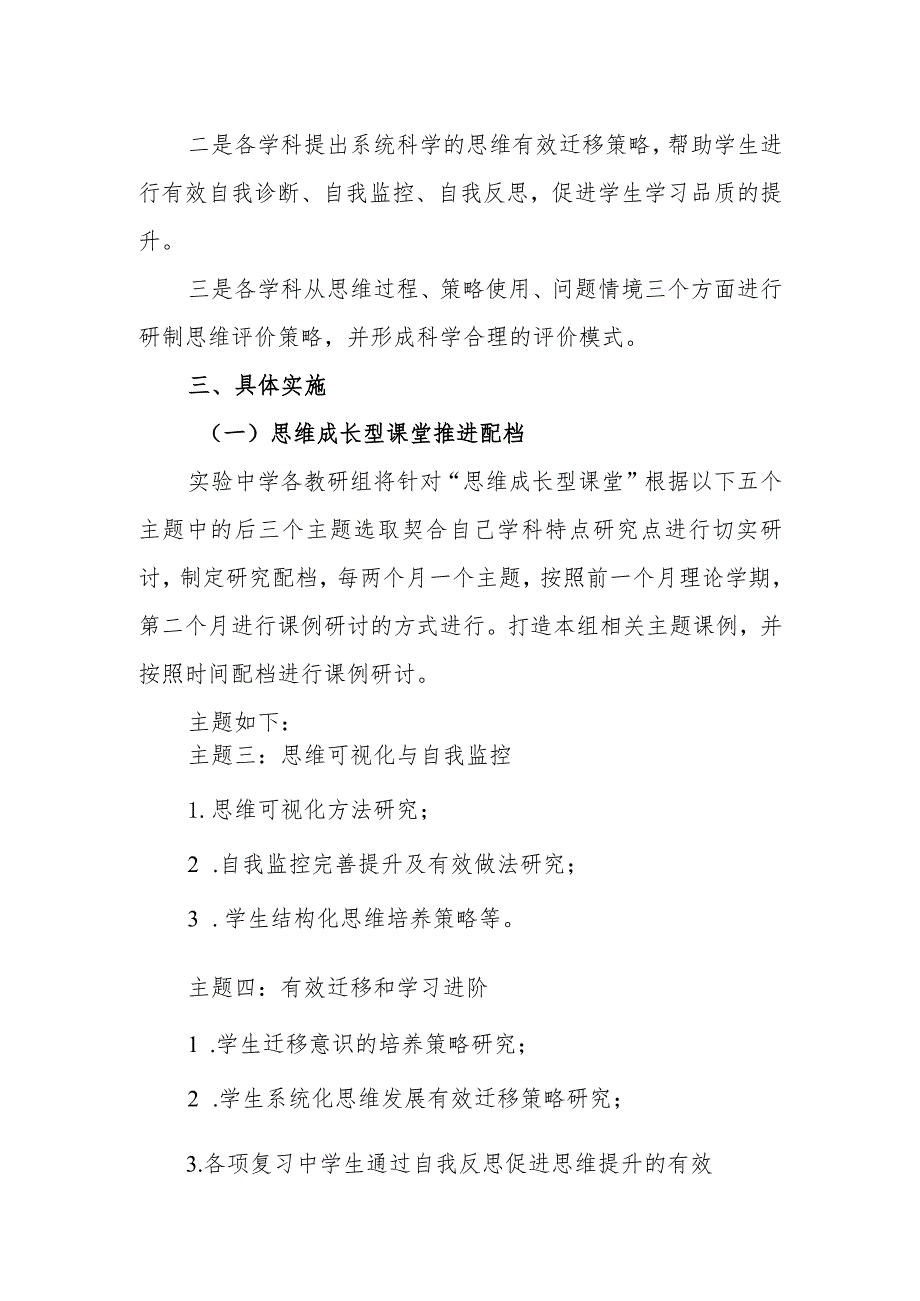 二是各学科提出系统科学的思维有效迁移策略，帮助学生进
行有效自我诊断、自我监控、自我反思，促进学生学习品质的提
升。
三是各学科从思维过程、策略使用、问题情境三个方面进行
研制思维评价策略，并形成科学合理的评价模式。
三、具体实施
（一）思维成长型课堂推进配档
实验中学各教研组将针对“思维成长型课堂”根据以下五个
主题中的后三个主题选取契合自己学科特点研究点进行切实研
讨，制定研究配档，每两个月一个主题，按照前一个月理论学期，
第二个月进行课例研讨的方式进行。打造本组相关主题课例，并
按照时间配档进行课例研讨。
主题如下：
主题三：思维可视化与自我监控
1.思维可视化方法研究；
2 .自我监控完善提升及有效做法研究；
3 .学生结构化思维培养策略等。
主题四：有效迁移和学习进阶
1 .学生迁移意识的培养策略研究；
2 .学生系统化思维发展有效迁移策略研究；
3.各项复习中学生通过自我反思促进思维提升的有效